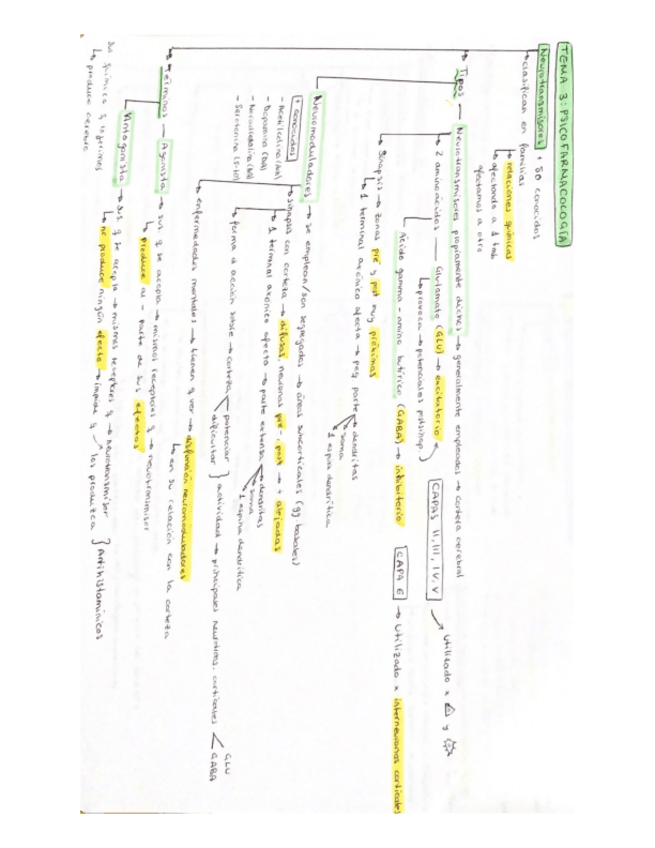 TEMA 3: PSICOFARMACOLOGÍA
Neurotransmisores + 50 conocidos
clasifican en familias
relaciones químicas
afectando a 1 tab
afectamos a otro
Tipos — Neurotransmisores propiamente dichos → generalmente empleados → corteza cerebral
2 aminoácidos — Glutamato (GLU) → excitatorio
provoca → potenciales postsinap.
CAPAS II, III, IV, V → utilizado x y
Ácido gamma-amino butírico (GABA) → inhibitorio
CAPA 6 → utilizado x interneuronas corticales
sinapsis → zonas pre y post muy próximas
1 terminal axónico afecta → peq parte → dendritas
soma
1 espina dendrítica
Neuromoduladores → se emplean/son segregados → áreas subcorticales (gg basales)
+ conocidos
- Acetilcolina (Ach)
- Dopamina (DA)
- Noradrenalina (NA)
- Serotonina (5-HT)
sinapsis con corteza → difusas, neuronas pre-, post → + alejadas
1 terminal axónico afecta → parte extensa → dendritas
soma
1 espina dendrítica
forma d acción sobre → corteza
potenciar
dificultar } actividad → principales neurotrans. corticales
GLU
GABA
enfermedades mentales → tienen q ver → disfunción neuromoduladores
en su relación con la corteza
Términos — Agonista → sus. q se acopla → mismos receptores q → neurotransmisor
produce al - parte de sus efectos
Antagonista → sus. q se acopla → mismos receptores q → neurotransmisor
no produce ningún efecto → impide q los produzca } Antihistamínicos
sus química q ingerimos
produce cerebro